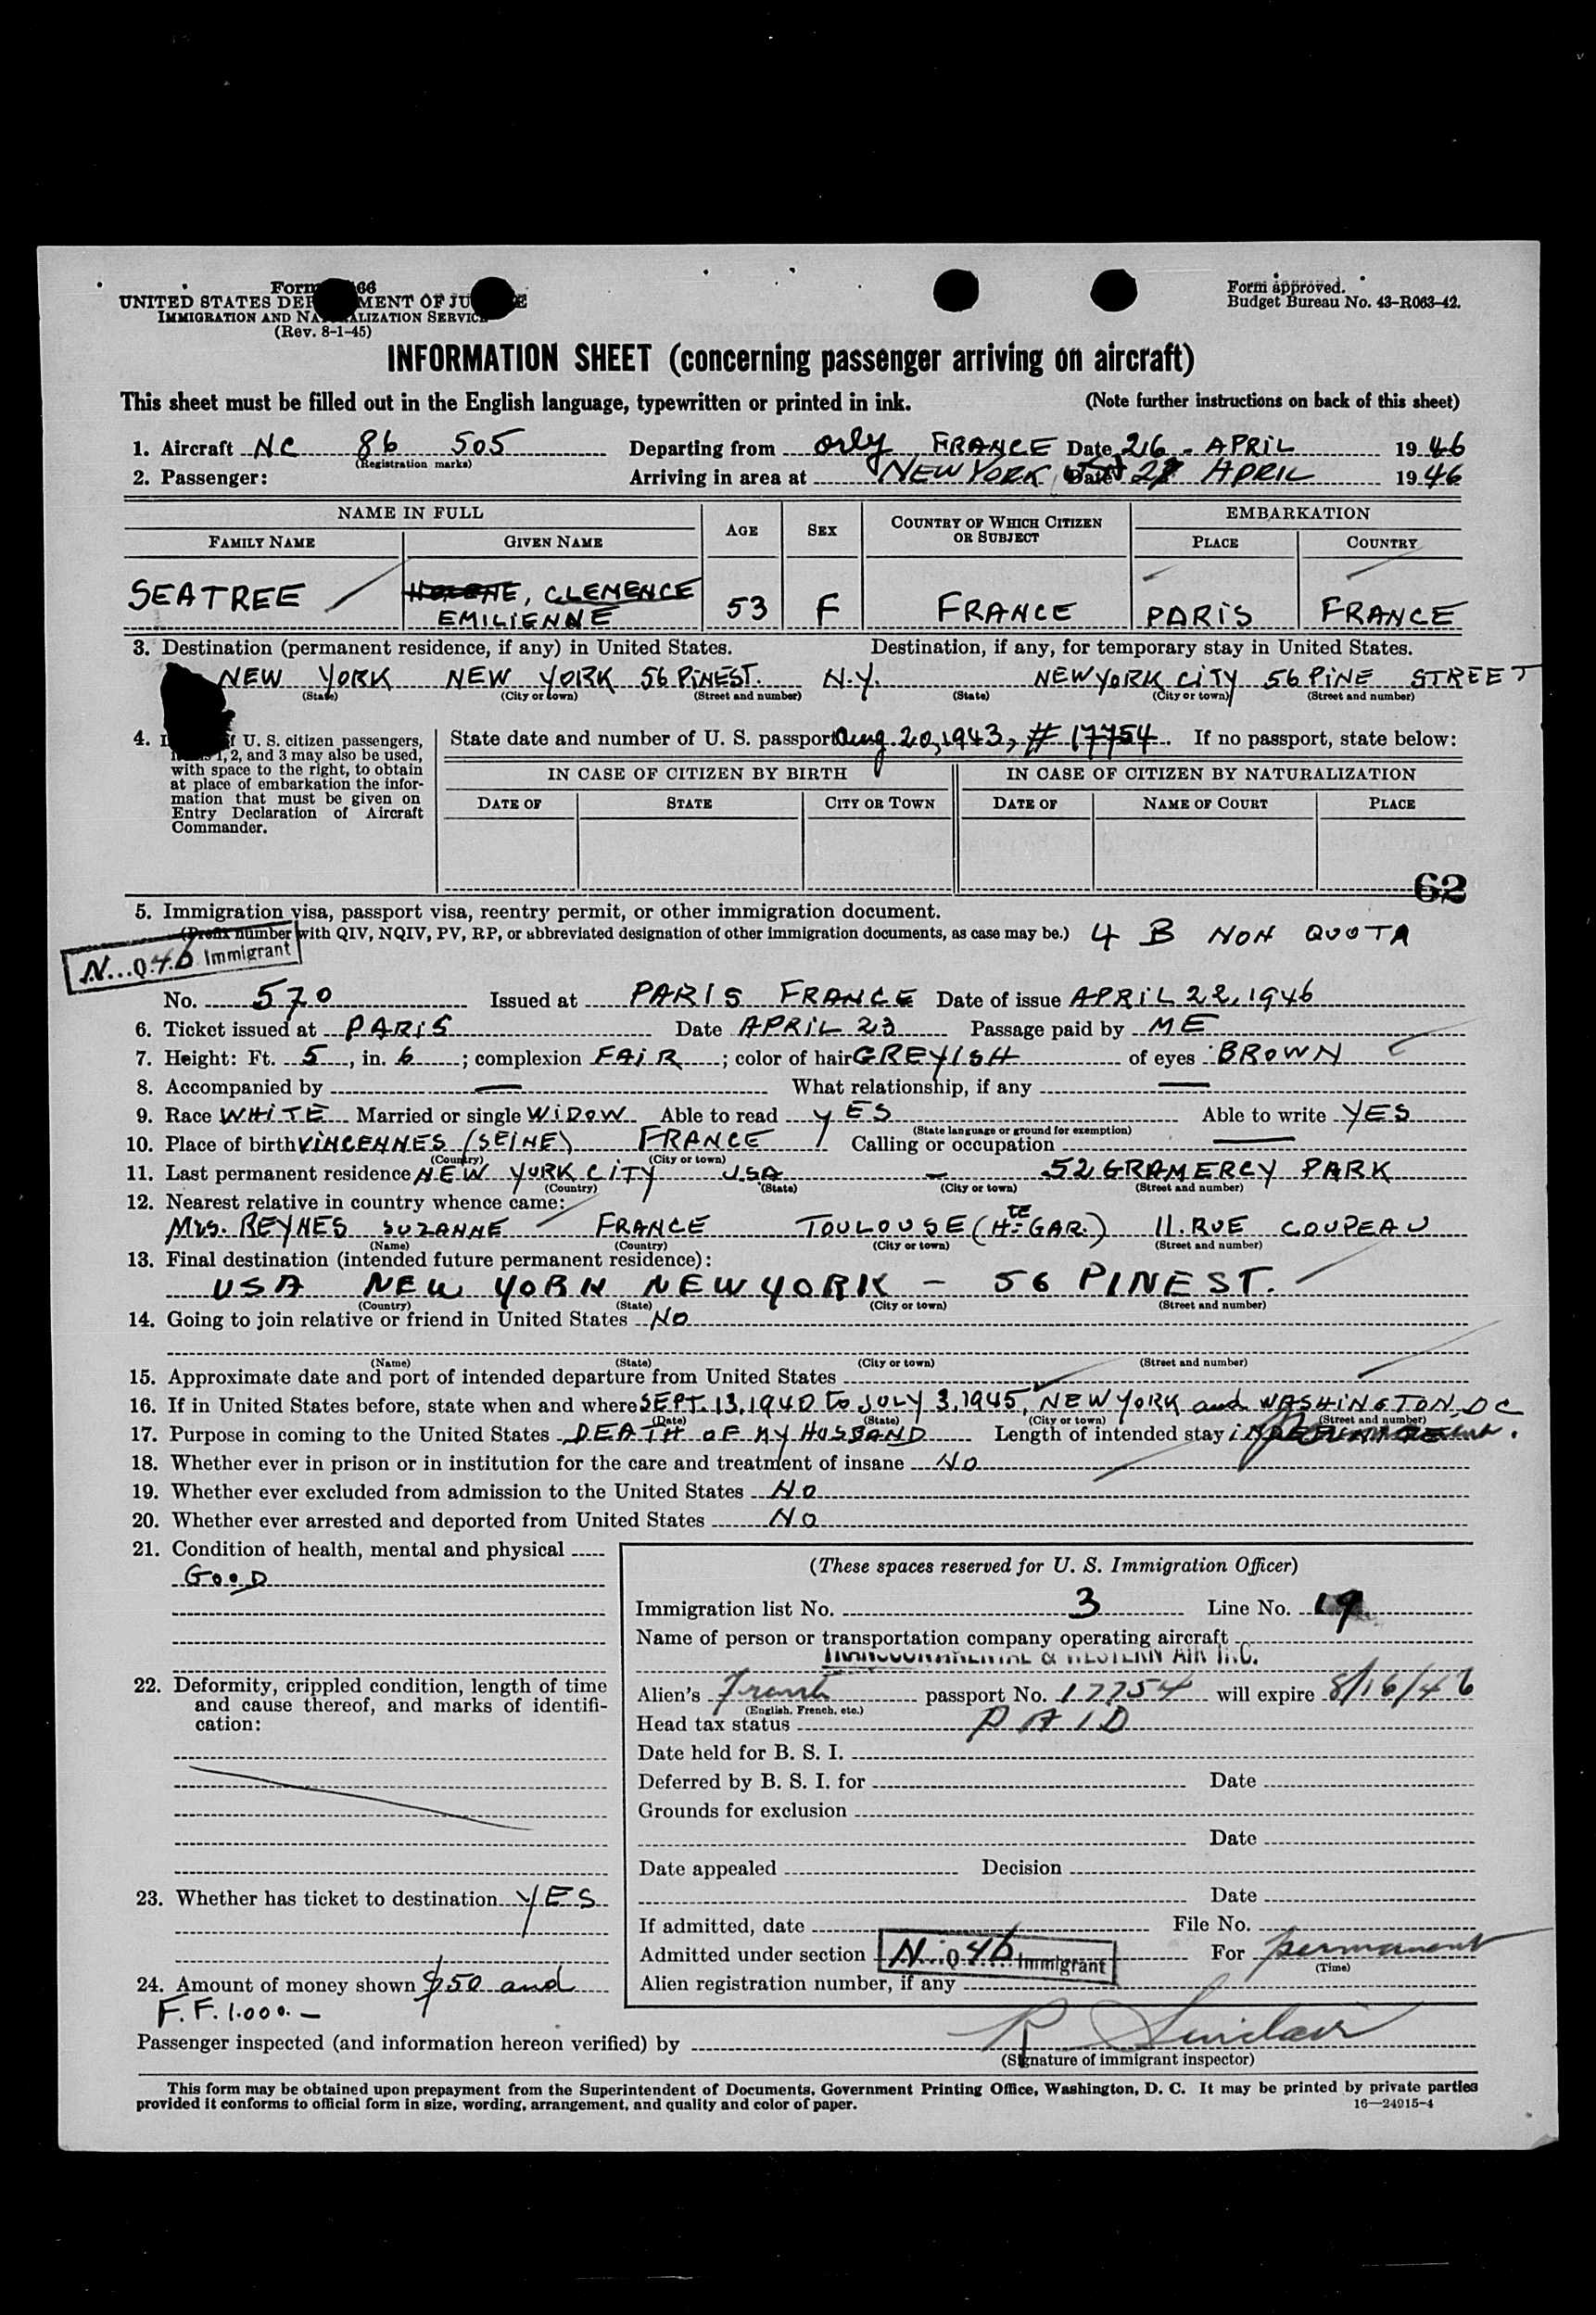 Form 66
UNITED STATES DEP MENT OF JU E
IMMIGRATION AND NA ALIZATION SERVIC
(Rev. 8-1-45)
Form approved.
Budget Bureau No. 43-R063-42.
INFORMATION SHEET (concerning passenger arriving on aircraft)
This sheet must be filled out in the English language, typewritten or printed in ink. (Note further instructions on back of this sheet)
1. Aircraft NC 86 505 Departing from orly FRANCE Date 26 - APRIL 1946
(Registration marks)
2. Passenger: Arriving in area at NEW YORK, Date 27 APRIL 1946
NAME IN FULL AGE SEX COUNTRY OF WHICH CITIZEN OR SUBJECT EMBARKATION
FAMILY NAME GIVEN NAME PLACE COUNTRY
SEATREE , CLEMENCE
EMILIENNE 53 F FRANCE PARIS FRANCE
3. Destination (permanent residence, if any) in United States. Destination, if any, for temporary stay in United States.
NEW YORK NEW YORK 56 PINEST. N.Y. NEW YORK CITY 56 PINE STREET
(State) (City or town) (Street and number) (State) (City or town) (Street and number)
4. f U. S. citizen passengers,
1, 2, and 3 may also be used,
with space to the right, to obtain
at place of embarkation the infor-
mation that must be given on
Entry Declaration of Aircraft
Commander.
State date and number of U. S. passport Aug. 20, 1943, # 17754. If no passport, state below:
IN CASE OF CITIZEN BY BIRTH IN CASE OF CITIZEN BY NATURALIZATION
DATE OF STATE CITY OR TOWN DATE OF NAME OF COURT PLACE
62
5. Immigration visa, passport visa, reentry permit, or other immigration document.
(Prefix number with QIV, NQIV, PV, RP, or abbreviated designation of other immigration documents, as case may be.) 4 B NON QUOTA
N...Q.4.b Immigrant
No. 570 Issued at PARIS FRANCE Date of issue APRIL 22, 1946
6. Ticket issued at PARIS Date APRIL 23 Passage paid by ME
7. Height: Ft. 5, in. 6; complexion FAIR; color of hair GREYISH of eyes BROWN
8. Accompanied by — What relationship, if any —
9. Race WHITE Married or single WIDOW Able to read YES Able to write YES
(State language or ground for exemption)
10. Place of birth VINCENNES (SEINE) FRANCE Calling or occupation —
(Country) (City or town)
11. Last permanent residence NEW YORK CITY USA — 52 GRAMERCY PARK
(Country) (State) (City or town) (Street and number)
12. Nearest relative in country whence came:
Mrs. REYNES SUZANNE FRANCE TOULOUSE (HTE GAR.) 11. RUE COUPEAU
(Name) (Country) (City or town) (Street and number)
13. Final destination (intended future permanent residence):
USA NEW YORK NEW YORK — 56 PINEST.
(Country) (State) (City or town) (Street and number)
14. Going to join relative or friend in United States NO
(Name) (State) (City or town) (Street and number)
15. Approximate date and port of intended departure from United States
16. If in United States before, state when and where SEPT. 13. 1940 to JULY 3. 1945, NEW YORK and WASHINGTON, DC
(Date) (State) (City or town) (Street and number)
17. Purpose in coming to the United States DEATH OF MY HUSBAND Length of intended stay
18. Whether ever in prison or in institution for the care and treatment of insane NO
19. Whether ever excluded from admission to the United States NO
20. Whether ever arrested and deported from United States NO
21. Condition of health, mental and physical
GOOD
22. Deformity, crippled condition, length of time
and cause thereof, and marks of identifi-
cation:
23. Whether has ticket to destination YES
24. Amount of money shown $50 and
F.F. 1.000.—
(These spaces reserved for U. S. Immigration Officer)
Immigration list No. 3 Line No. 19
Name of person or transportation company operating aircraft
TRANSCONTINENTAL & WESTERN AIR INC.
Alien's French passport No. 17754 will expire 8/16/46
(English, French, etc.)
Head tax status PAID
Date held for B. S. I.
Deferred by B. S. I. for Date
Grounds for exclusion
Date
Date appealed Decision
Date
If admitted, date File No.
Admitted under section N...Q.4b.... Immigrant For permanent
(Time)
Alien registration number, if any
Passenger inspected (and information hereon verified) by R Sinclair
(Signature of immigrant inspector)
This form may be obtained upon prepayment from the Superintendent of Documents, Government Printing Office, Washington, D. C. It may be printed by private parties
provided it conforms to official form in size, wording, arrangement, and quality and color of paper. 16—24915-4